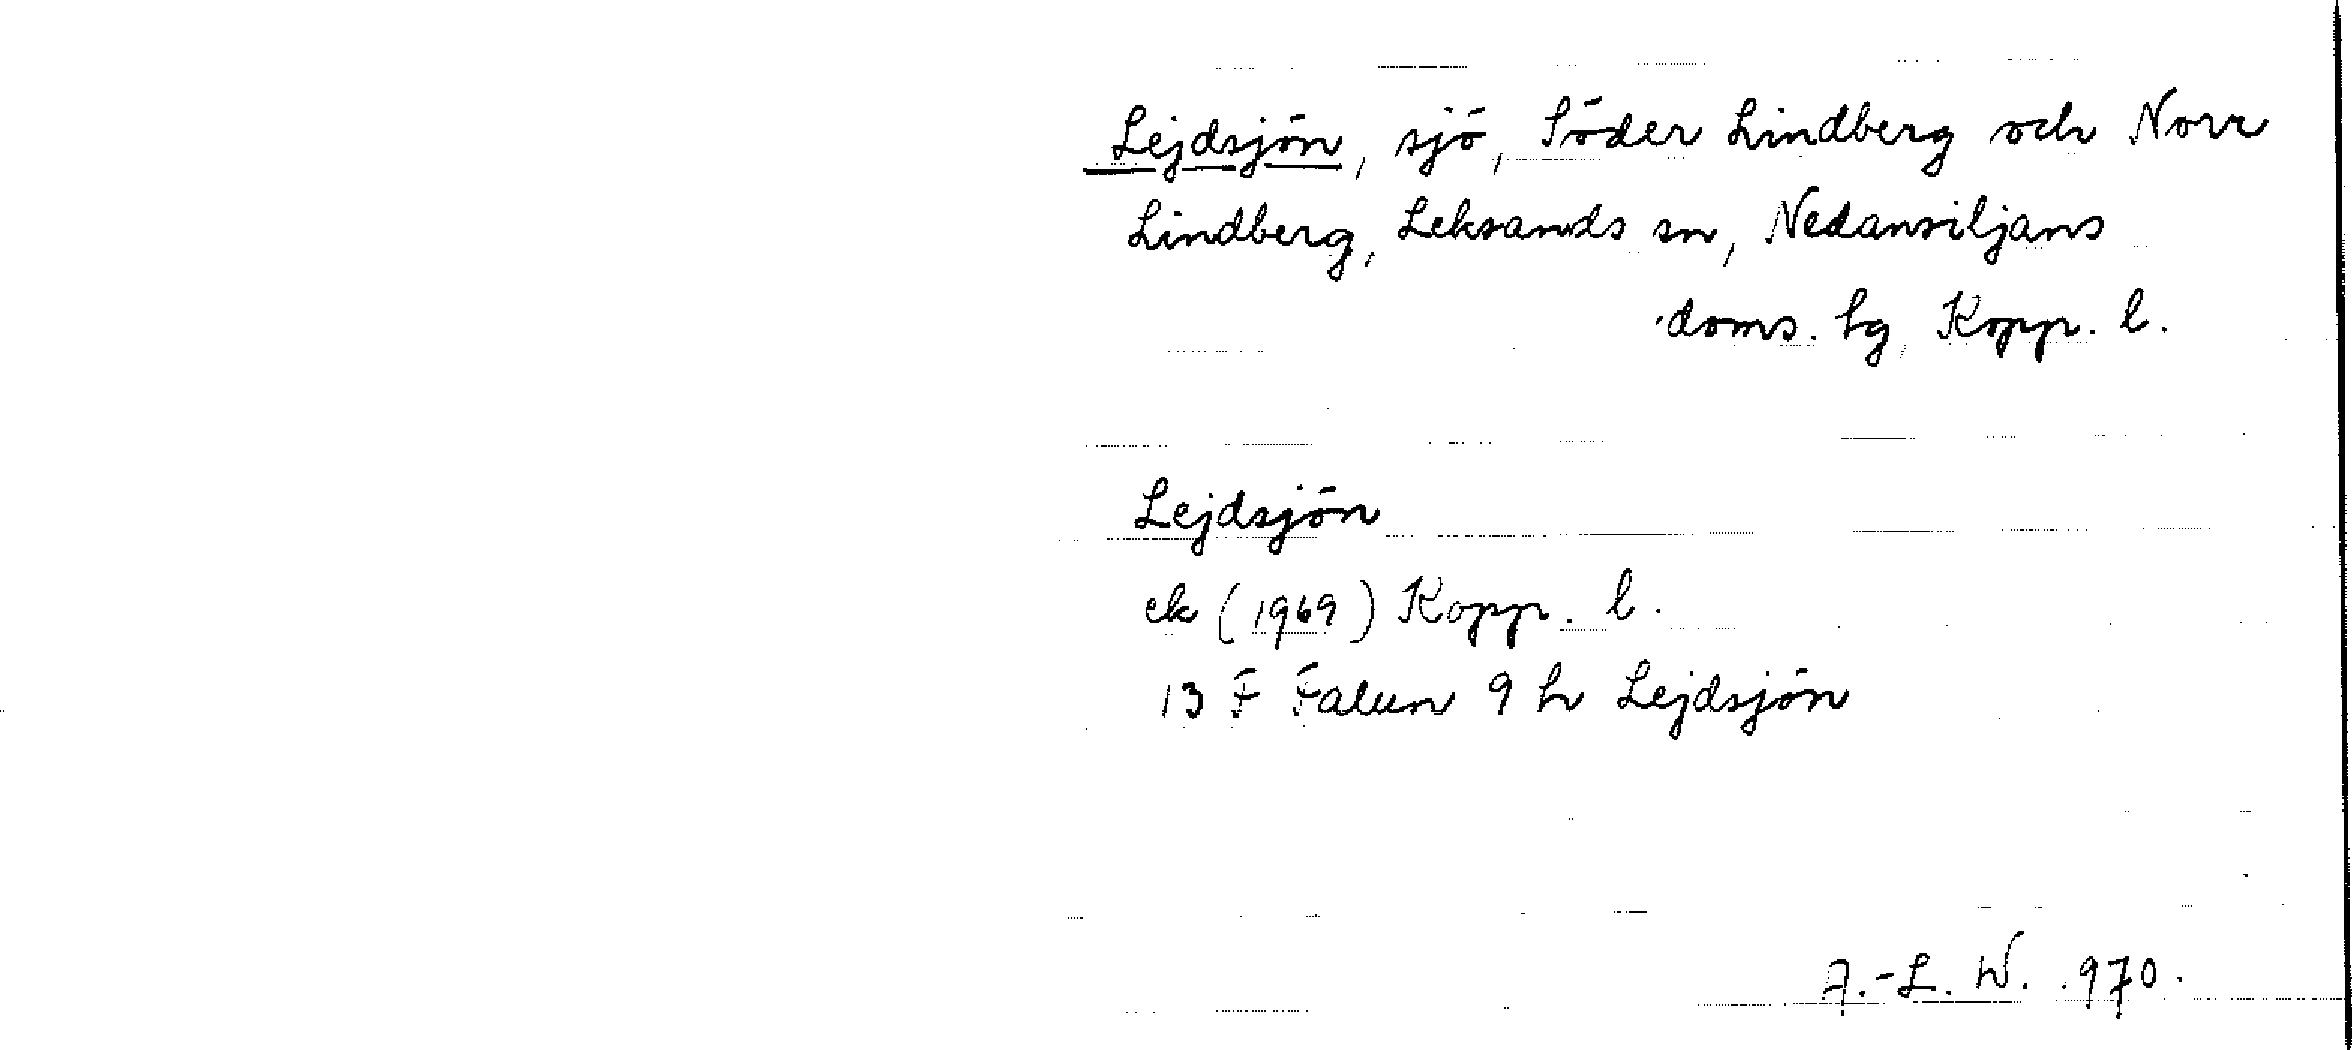 Lejdsjön, sjö, Söder Lindberg och Norr
Lindberg, Leksands sn, Nedansiljans
doms. hg, Kopp. l.
Lejdsjön
ek (1969) Kopp. l.
13 F Falun 9 h Lejdsjön
A.-L. W. 970.